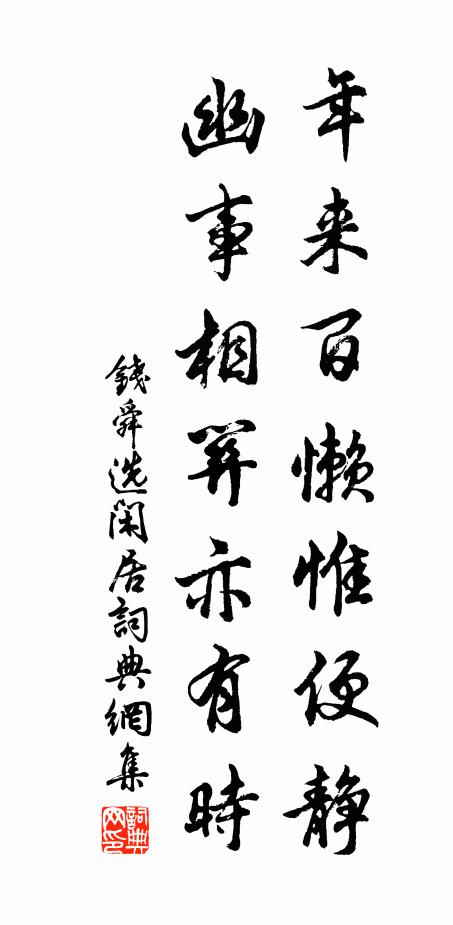 年来百懒惟便静
幽事相关亦有時
錢舜选闲居詞典網集
詞典网印